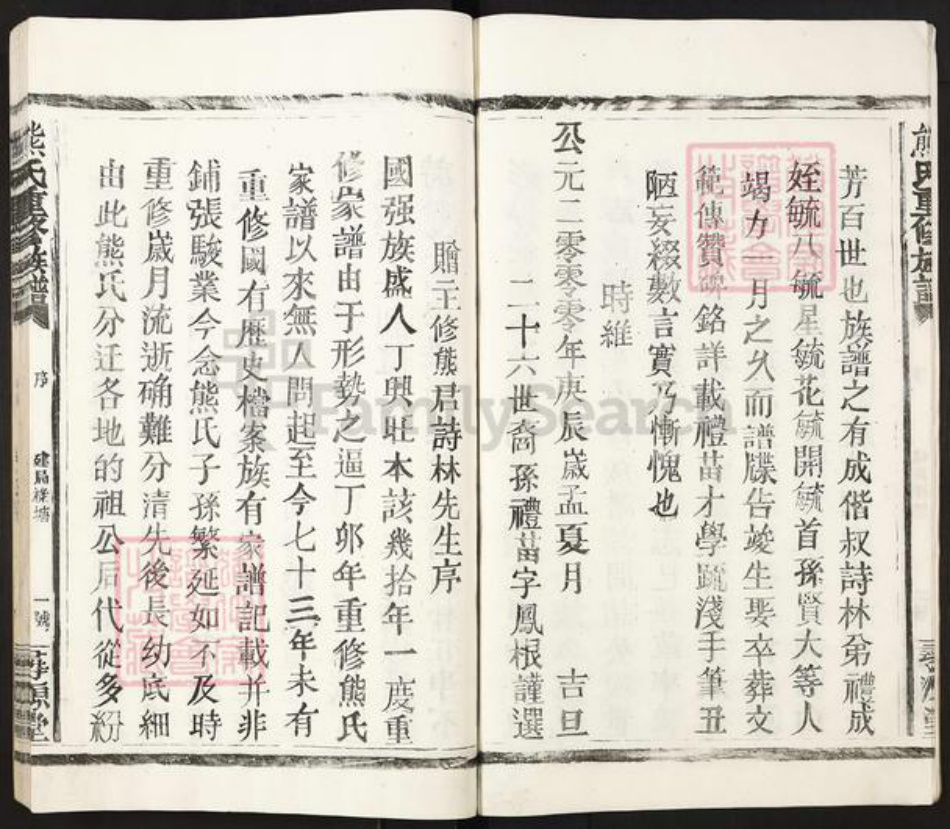 熊氏重修族譜
芳百世也族譜之有成偕叔詩林弟禮成
姪毓八毓星毓花毓開毓首孫賢大等人
竭力一月之久而譜牒告竣生娶卒葬文
範傳贊碑銘詳載禮苗才學疏淺手筆丑
陋妄綴數言實乃慚愧也
時維
公元二零零零年庚辰嵗孟夏月 吉旦
二十六世裔孫禮苗字鳳根謹選
贈主修熊君詩林先生序
國强族盛人丁興旺本該幾拾年一度重
修家譜由于形勢之逼丁卯年重修熊氏
家譜以來無人問起至今七十三年未有
重修國有歷史檔案族有家譜記載并非
鋪張駿業今念熊氏子孫繁延如不及時
重修嵗月流逝确難分清先後長幼底細
由此熊氏分迁各地的祖公后代從多紛
熊氏重修族譜
序
一號
尋源堂
FamilySearch